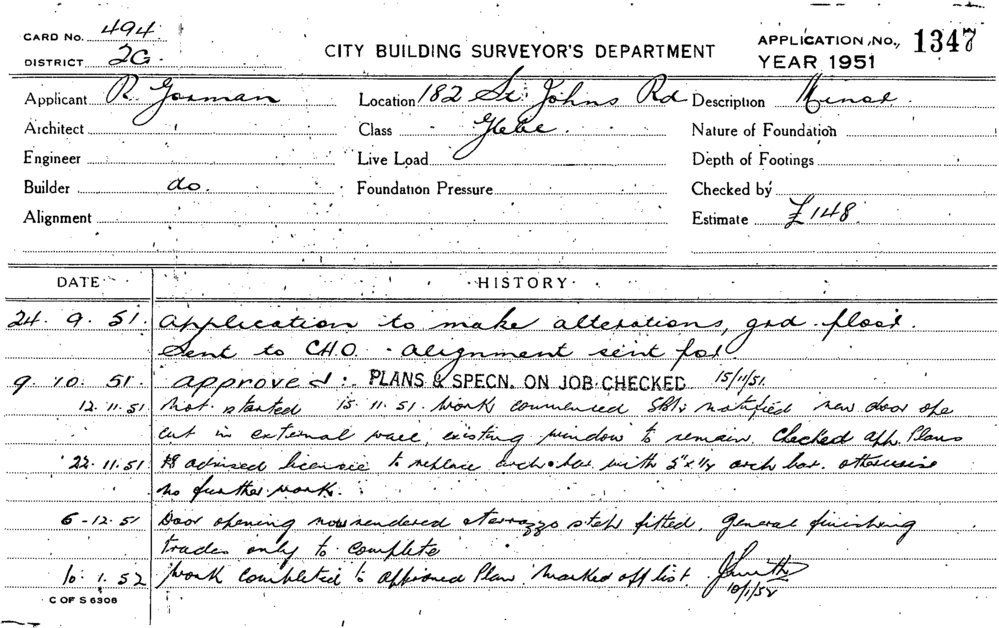 CARD No. 494
DISTRICT 2G.
CITY BUILDING SURVEYOR'S DEPARTMENT
APPLICATION No. 1347
YEAR 1951
Applicant R Gorman Location 182 St. Johns Rd Description Minor.
Architect Class Glebe. Nature of Foundation
Engineer Live Load Depth of Footings
Builder do. Foundation Pressure Checked by
Alignment Estimate £148.
DATE HISTORY
24. 9. 51. Application to make alterations, grd. floor.
Sent to C.H.O. - alignment sent for
9. 10. 51. approved: PLANS & SPECN. ON JOB CHECKED 15/11/51.
12. 11. 51 Not started 15. 11. 51. Work commenced notified new door ope
cut in external wall, existing window to remain. Checked app. Plans
22. 11. 51 advised licensee to replace arch bar with 3" x 1/2 arch bar. otherwise
no further work.
6-12. 51 Door opening now rendered & terrazzo step fitted. General finishing
trades only to complete
10. 1. 52 Work completed to approved Plan. Marked off list. JSmith
10/1/52
C OF S 6306